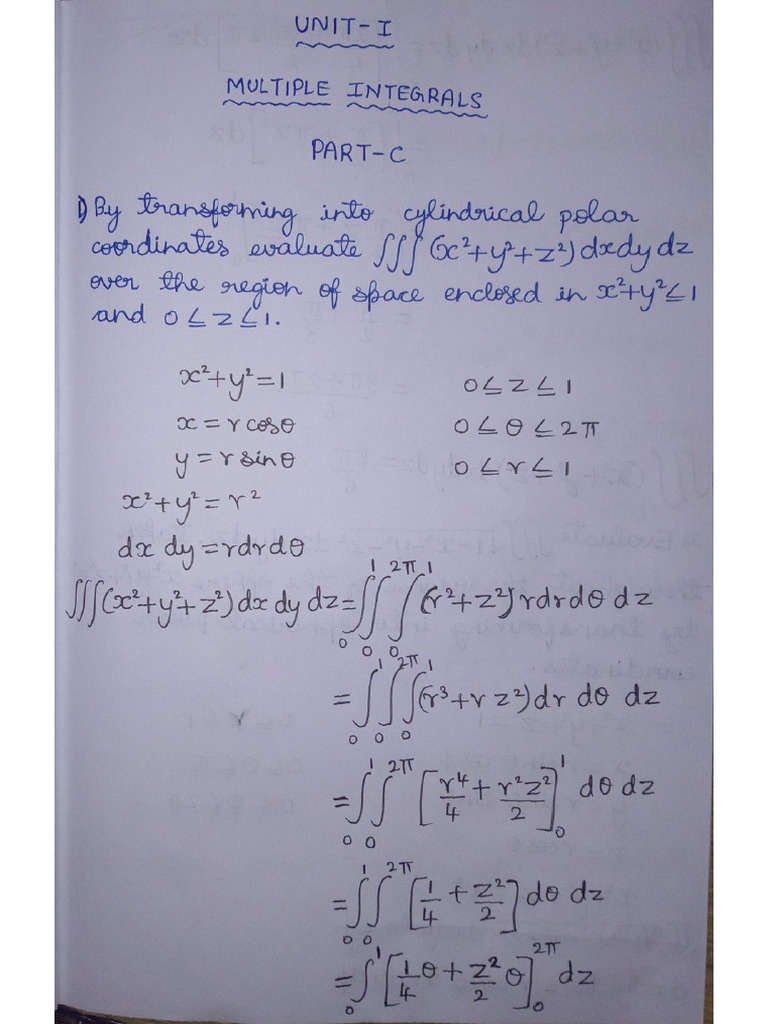 UNIT-I
MULTIPLE INTEGRALS
PART-C
1) By transforming into cylindrical polar
coordinates evaluate ∫∫∫ (x²+y²+z²) dx dy dz
over the region of space enclosed in x²+y²≤1
and 0≤z≤1.
x²+y²=1 0≤z≤1
x=r cosθ 0≤θ≤2π
y=r sinθ 0≤r≤1
x²+y²=r²
dx dy=rdrdθ
∫∫∫(x²+y²+z²)dx dy dz=∫₀¹∫₀^2π∫₀¹(r²+z²)rdrdθ dz
=∫₀¹∫₀^2π∫₀¹(r³+r z²)dr dθ dz
=∫₀¹∫₀^2π[r⁴/4+r²z²/2]₀¹ dθ dz
=∫₀¹∫₀^2π[1/4+z²/2]dθ dz
=∫₀¹[1/4 θ+z²/2 θ]₀^2π dz